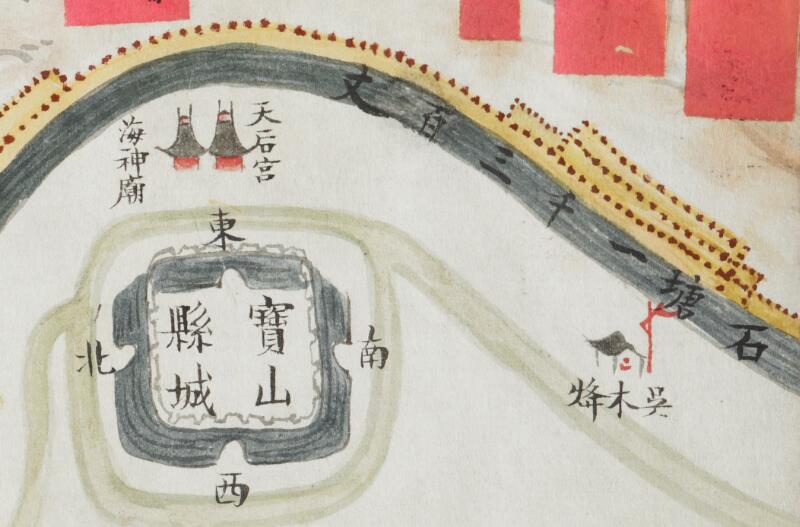 石塘一千三百丈
天后宮
海神廟
東
南
寶山
縣城
北
西
吳木烽